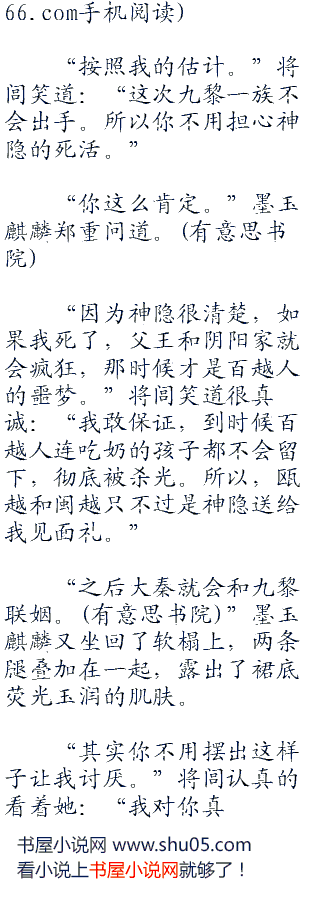 66.com手机阅读)
“按照我的估计。”将
闾笑道：“这次九黎一族不
会出手。所以你不用担心神
隐的死活。”
“你这么肯定。”墨玉
麒麟郑重问道。(有意思书
院)
“因为神隐很清楚，如
果我死了，父王和阴阳家就
会疯狂，那时候才是百越人
的噩梦。”将闾笑道很真
诚：“我敢保证，到时候百
越人连吃奶的孩子都不会留
下，彻底被杀光。所以，瓯
越和闽越只不过是神隐送给
我见面礼。”
“之后大秦就会和九黎
联姻。(有意思书院)”墨玉
麒麟又坐回了软榻上，两条
腿叠加在一起，露出了裙底
荧光玉润的肌肤。
“其实你不用摆出这样
子让我讨厌。”将闾认真的
看着她：“我对你真
书屋小说网 www.shu05.com
看小说上书屋小说网就够了！